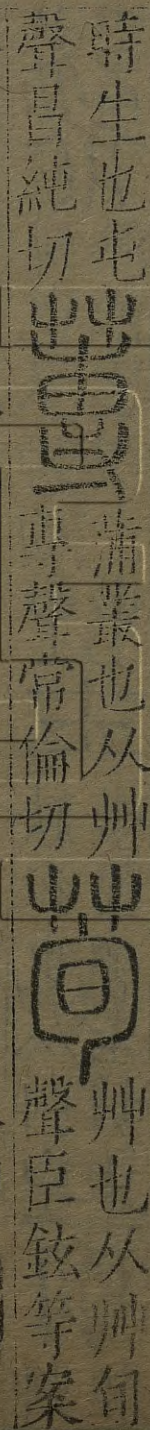 時生也屯
聲昌純切
蓴
蒲叢也从艸
專聲常倫切
荀
艸也从艸旬
聲臣鉉等案